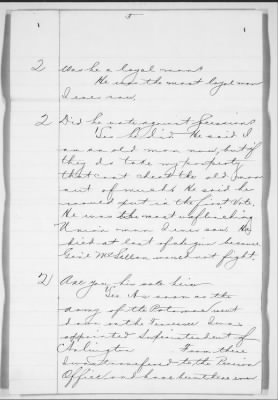 5
2 Was he a loyal man?
He was the most loyal man
I ever saw.
2 Did he vote against Secession
Yes he did. He said I
am an old man now, but if
they do take my property
they can't cheat the old man
out of much. He said he
would put in the first vote.
He was the most unflinching
Union man I ever saw. He
died at last of chagrin because
Genl McClellan would not fight.
2 Are you his
Yes. As soon as the
army of the Potomac went
down on the I was
appointed Superintendent of
Arlington From there
I was transferred to the
Office and have been there ever